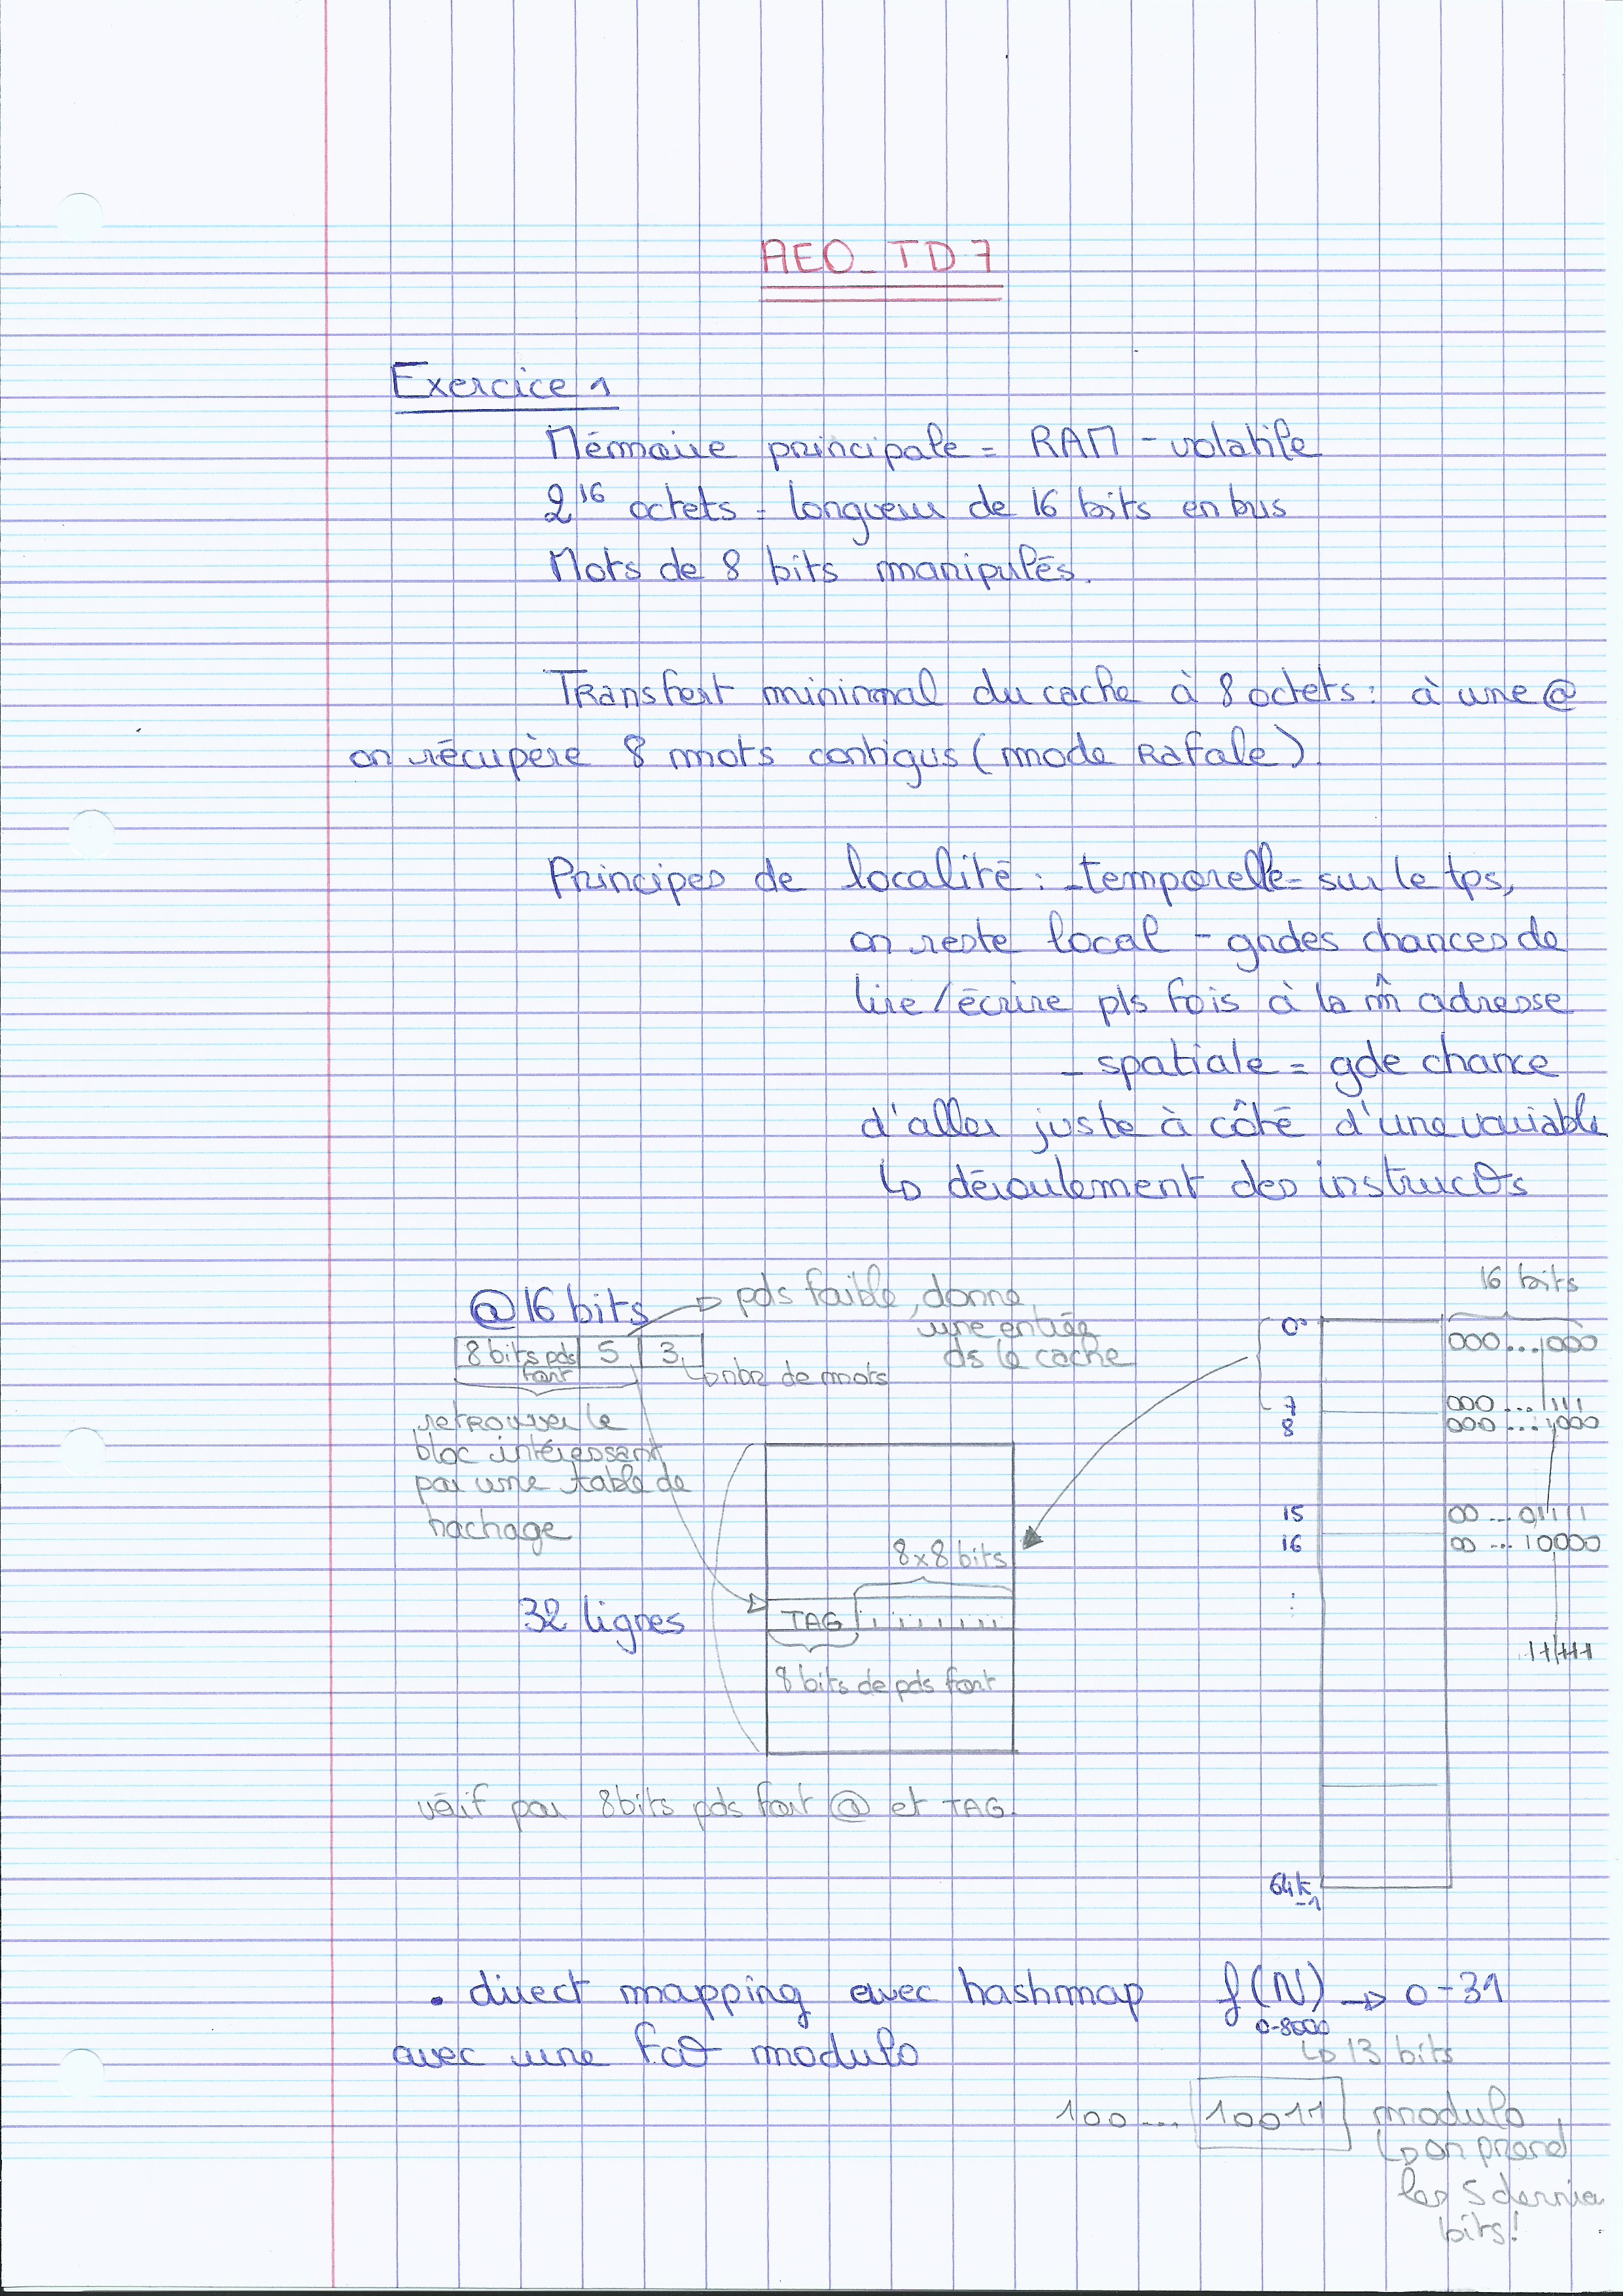 AEO_TD7
Exercice 1
Mémoire principale = RAM - volatile
2^16 octets = longueur de 16 bits en bus
Mots de 8 bits manipulés.
Transfert minimal du cache à 8 octets : à une @
on récupère 8 mots contigus (mode Rafale).
Principes de localité : - temporelle = sur le tps,
on reste local - gndes chances de
lire/écrire pls fois à la m̂ adresse
- spatiale = gde chance
d'aller juste à côté d'une variable
↳ déroulement des instructθs
@16 bits → pds faible, donne
une entrée
ds le cache
8 bits pds fort 5 3
↳ nbr de mots
retrouver le
bloc intéressant
par une table de
hachage
32 lignes
8x8 bits
TAG
8 bits de pds fort
vérif par 8bits pds fort @ et TAG.
16 bits
0 000...000
7 000...111
8 000...1000
15 00...01111
16 00...10000
:
11111
64k-1
• direct mapping avec hashmap f(N) → 0-31
0-8000
avec une fcθ modulo
↳ 13 bits
100... 10011 modulo
↳ on prend
les 5 dernie
bits!